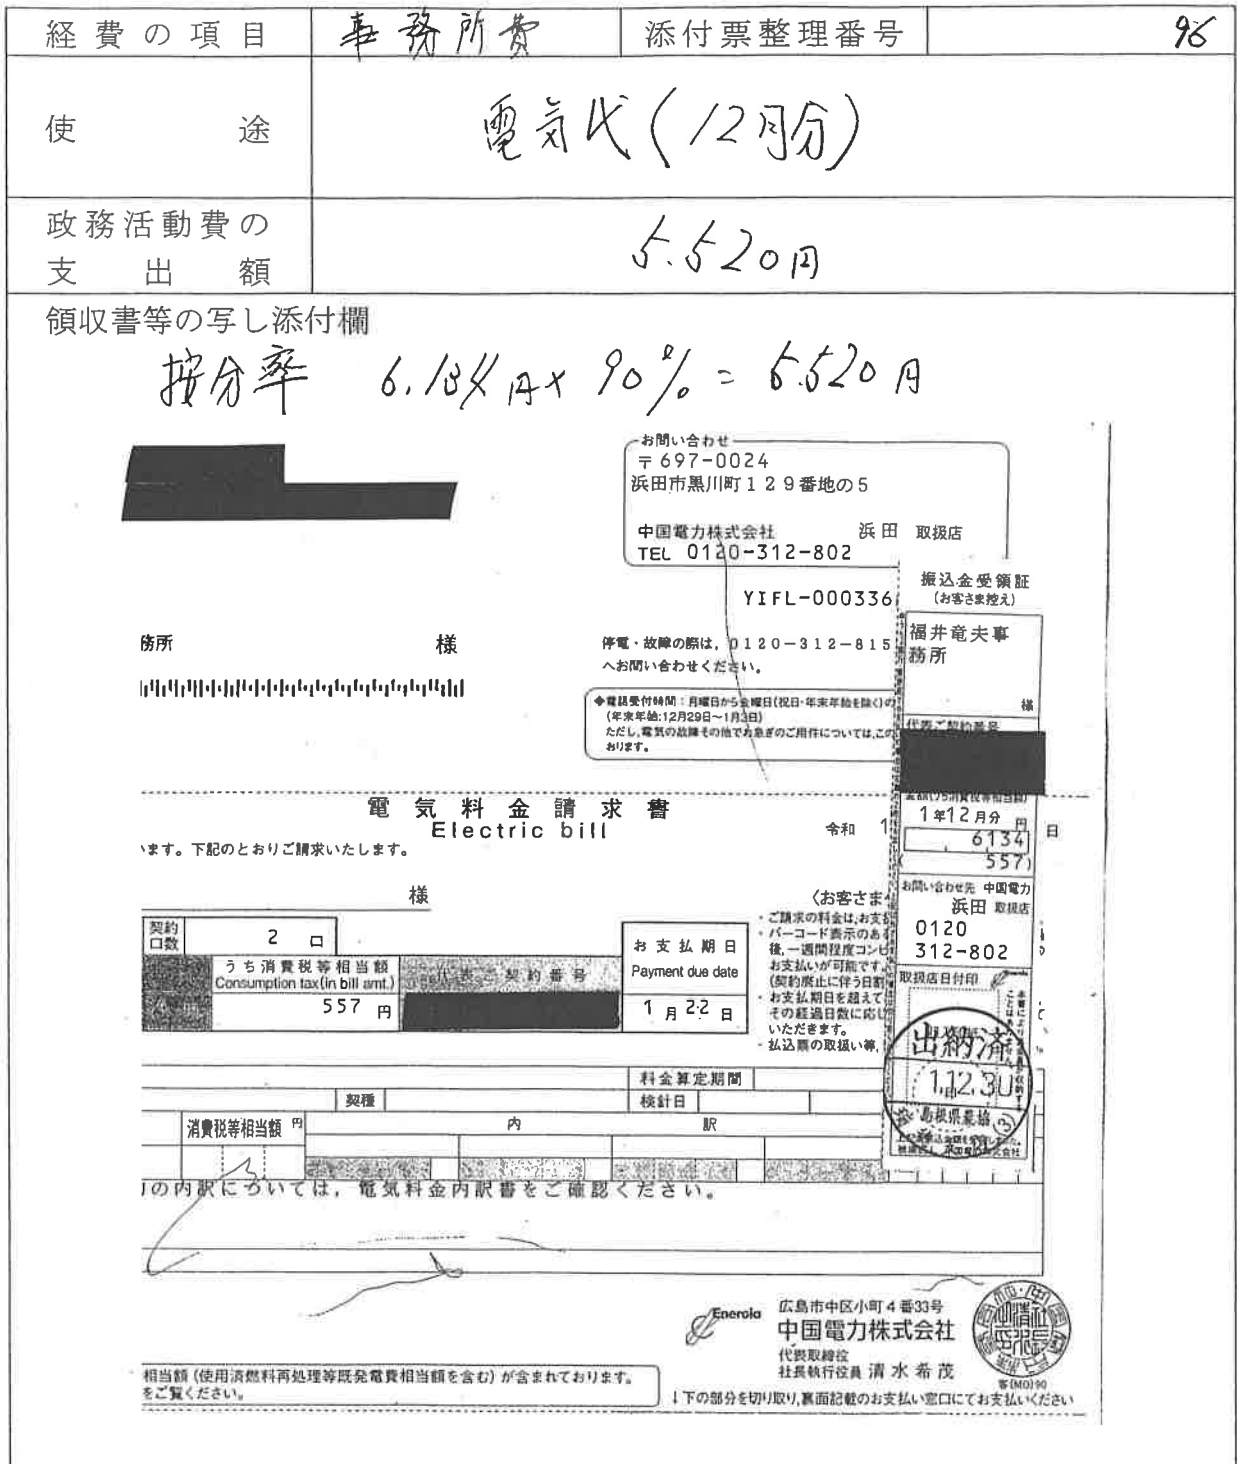 経費の項目 事務所費 添付票整理番号 96
使途 電気代(12月分)
政務活動費の
支出額 5.520円
領収書等の写し添付欄
按分率 6.134円×90%=5.520円
お問い合わせ
〒697-0024
浜田市黒川町129番地の5
中国電力株式会社 浜田 取扱店
TEL 0120-312-802
YIFL-000336
務所 様
停電・故障の際は,0120-312-815
へお問い合わせください。
◆電話受付時間:月曜日から金曜日(祝日・年末年始を除く)の
(年末年始:12月29日~1月3日)
ただし,電気の故障その他でお急ぎのご用件については,この
おります。
振込金受領証
(お客さま控え)
福井竜夫事
務所
様
代表ご契約番号
金額(うち消費税等相当額)
1年12月分 円
6134
(557)
お問い合わせ先 中国電力
浜田 取扱店
0120
312-802
取扱店日付印
出納済
1.12.30
島根県農協
(3)
電気料金請求書
Electric bill
令和 1 日
います。下記のとおりご請求いたします。
様
契約
口数 2 口
うち消費税等相当額
Consumption tax(in bill amt.)
557 円
代表ご契約番号
お支払期日
Payment due date
1月22日
〈お客さま
・ご請求の料金は,お支払
・バーコード表示のある
後,一週間程度コンビ
お支払いが可能です。
(契約廃止に伴う日割
・お支払期日を超えて
その経過日数に応じ
いただきます。
・払込票の取扱い等,
料金算定期間
契種 検針日
消費税等相当額 円 内訳
の内訳については,電気料金内訳書をご確認ください。
Energia
広島市中区小町4番33号
中国電力株式会社
代表取締役
社長執行役員 清水希茂
客(MO)90
相当額(使用済燃料再処理等既発電費相当額を含む)が含まれております。
をご覧ください。
↓下の部分を切り取り,裏面記載のお支払い窓口にてお支払いください